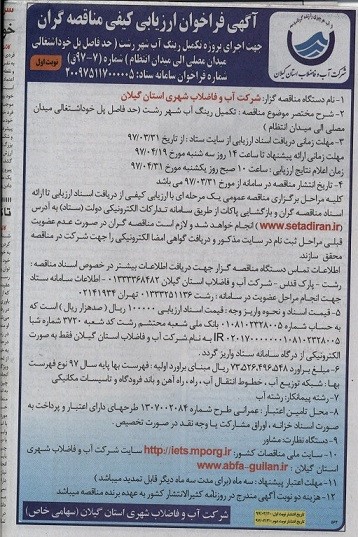 آگهی فراخوان ارزیابی کیفی مناقصه گران
جهت اجرای پروژه تکمیل رینگ آب شهر رشت (حد فاصل پل خوداشتغالی
میدان مصلی الی میدان انتظام) شماره (۷-۹۷ق)
شماره فراخوان سامانه ستاد: ۲۰۰۹۷۵۱۱۷۰۰۰۰۰۵
نوبت اول
شرکت آب و فاضلاب استان گیلان
۱- نام دستگاه مناقصه گزار: شرکت آب و فاضلاب شهری استان گیلان
۲- شرح مختصر موضوع مناقصه: تکمیل رینگ آب شهر رشت (حد فاصل پل خوداشتغالی میدان
مصلی الی میدان انتظام)
۳- مهلت زمانی دریافت اسناد ارزیابی از سایت ستاد: از تاریخ ۹۷/۰۳/۳۱
مهلت زمانی ارائه پیشنهاد تا ساعت ۱۴ روز سه شنبه مورخ ۹۷/۰۴/۱۹
زمان اعلام نتایج ارزیابی: ساعت ۱۰ صبح روز یکشنبه مورخ ۹۷/۰۴/۳۱
۴- تاریخ انتشار مناقصه در سامانه از مورخ ۹۷/۰۳/۳۱ می باشد
کلیه مراحل برگزاری مناقصه عمومی یک مرحله ای با ارزیابی کیفی از دریافت اسناد ارزیابی تا ارائه
اسناد مناقصه گران و بازگشایی پاکات از طریق سامانه تدارکات الکترونیکی دولت (ستاد) به آدرس
www.setadiran.ir) انجام خواهد شد و لازم است مناقصه گران در صورت عدم عضویت
قبلی مراحل ثبت نام در سایت مذکور و دریافت گواهی امضا الکترونیکی را جهت شرکت در مناقصه
محقق سازند
اطلاعات تماس دستگاه مناقصه گزار جهت دریافت اطلاعات بیشتر در خصوص اسناد مناقصه:
رشت - پارک قدس - شرکت آب و فاضلاب استان گیلان ۰۱۳۳۳۳۶۸۴۸۲ - اطلاعات سامانه ستاد
جهت انجام مراحل عضویت در سامانه: رشت ۰۱۳۳۳۲۵۱۱۳۶ تهران ۰۲۱۴۱۹۳۴
۵- قیمت اسناد و نحوه واریز وجه: قیمت اسناد ارزیابی ۱۰۰۰۰۰ ریال (صدهزار ریال) است که
به حساب شماره ۰۱۰۸۱۰۲۳۲۸۰۰۵ بانک ملی شعبه محتشم رشت کد شعبه ۳۷۲۰ شماره شبا
IR به نام شرکت آب و فاضلاب استان گیلان فقط به صورت
الکترونیکی از درگاه سامانه ستاد واریز گردد.
۶- مبلغ برآورد ۷۳,۵۲۶,۴۹۶,۵۴۸ ریال مبنای برآورد اولیه: فهرست بها پایه سال ۹۷ نوع فهرست
بها: شبکه توزیع آب، خطوط انتقال آب، راه، راه آهن و باند فرودگاه و تاسیسات مکانیکی
۷- رشته پیمانکار: رشته آب
۸- محل تامین اعتبار: عمرانی طرح شماره ۱۳۰۷۰۰۲۰۸۴ طرحهای دارای اعتبار و پرداخت به
صورت اسناد خزانه، اوراق مشارکت یا وجه نقد در صورت تخصیص.
۹- دستگاه نظارت: مشاور
۱۰- سایت ملی مناقصات کشور: http://iets.mporg.ir سایت شرکت آب و فاضلاب شهری
استان گیلان: www.abfa-guilan.ir
۱۱- مهلت اعتبار پیشنهاد: سه ماه (برای مدت سه ماه دیگر قابل تمدید میباشد)
۱۲- هزینه دو نوبت آگهی مندرج در روزنامه کثیرالانتشار کشور به عهده برنده مناقصه میباشد
شرکت آب و فاضلاب شهری استان گیلان (سهامی خاص)